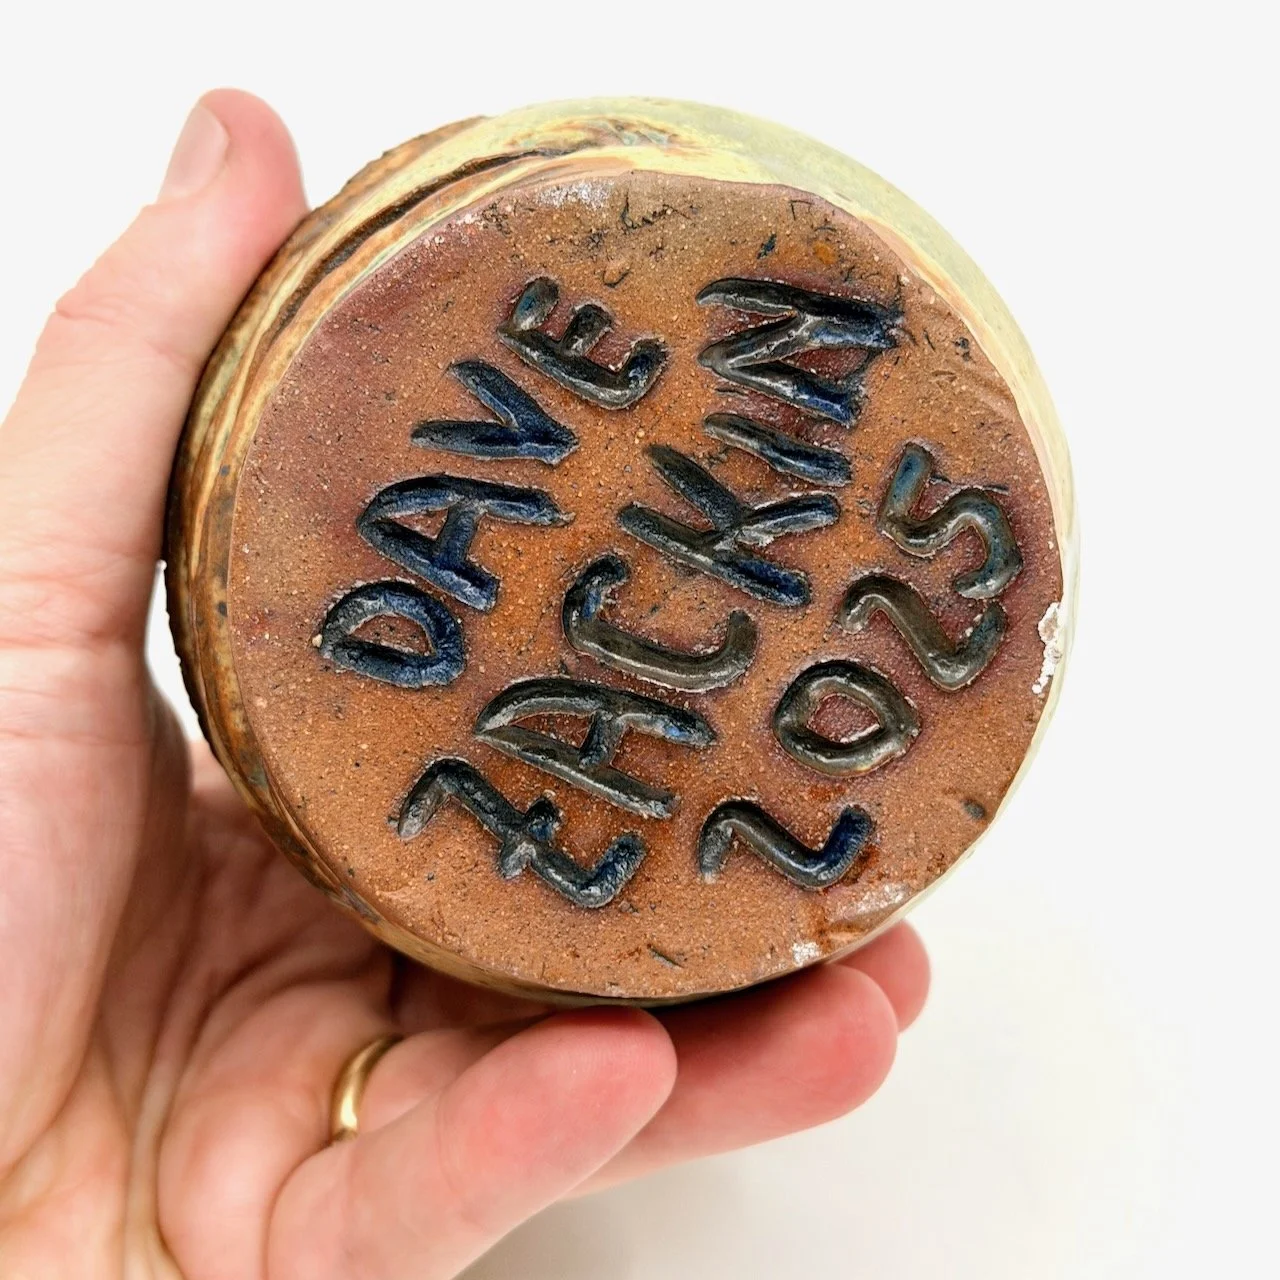 DAVE
ZACKIN
2025